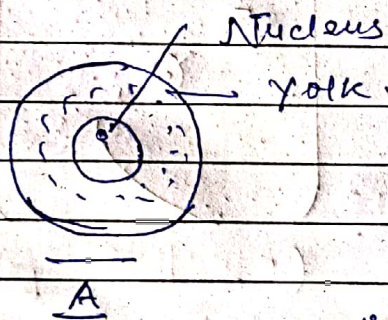 Nucleus
Yolk
A